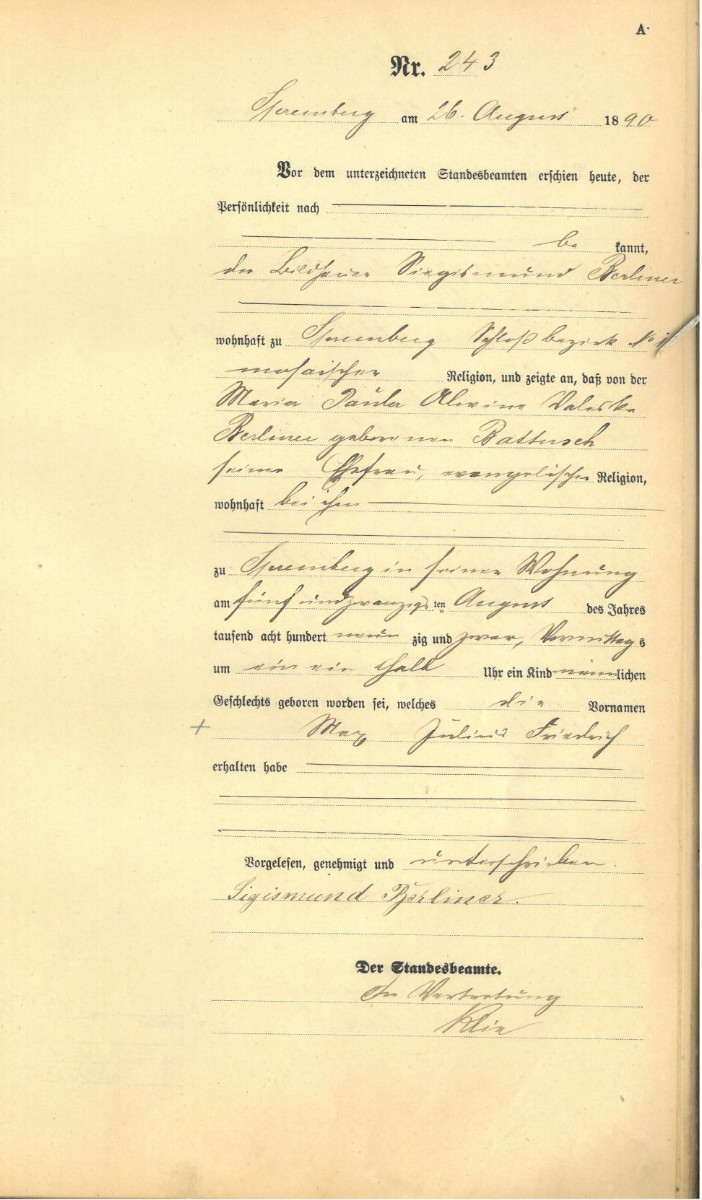 A.
Nr. 243
Spremberg am 26. August 1890
Vor dem unterzeichneten Standesbeamten erschien heute, der
Persönlichkeit nach
be kannt,
der Bildhauer Siegismund Berliner
wohnhaft zu Spremberg Schloßbezirk No 1
mosaischer Religion, und zeigte an, daß von der
Maria Paula Alwine Valeska
Berliner geborenen Battusch
seiner Ehefrau, evangelischer Religion,
wohnhaft bei ihm
zu Spremberg in seiner Wohnung
am fünf und zwanzigsten August des Jahres
tausend acht hundert neun zig und zwar, Vormittags
um ein ein halb Uhr ein Kind männlichen
Geschlechts geboren worden sei, welches die Vornamen
+ Max Julius Friedrich
erhalten habe
Vorgelesen, genehmigt und unterschrieben.
Sigismund Berliner.
Der Standesbeamte.
In Vertretung
Klie